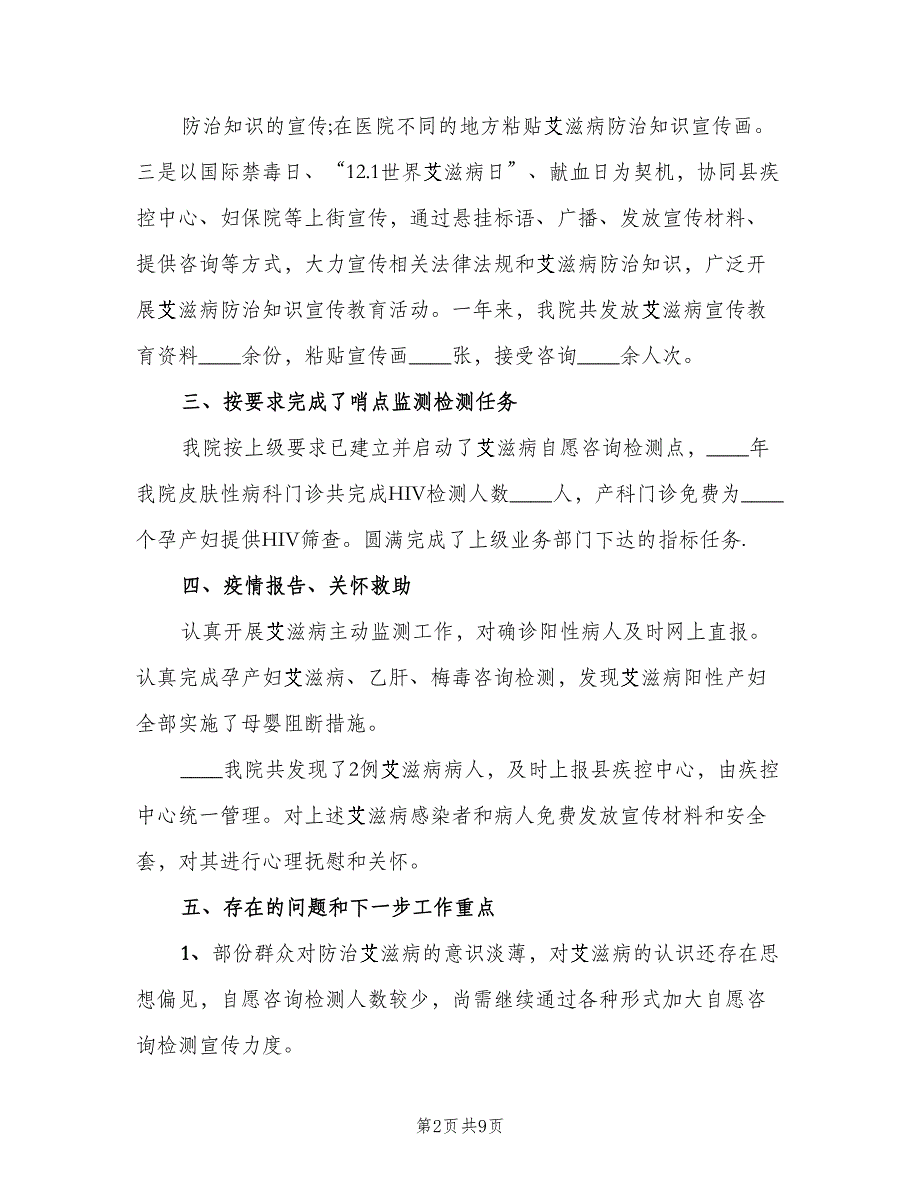 防治知识的宣传;在医院不同的地方粘贴艾滋病防治知识宣传画。
三是以国际禁毒日、“12.1世界艾滋病日”、献血日为契机，协同县疾
控中心、妇保院等上街宣传，通过悬挂标语、广播、发放宣传材料、
提供咨询等方式，大力宣传相关法律法规和艾滋病防治知识，广泛开
展艾滋病防治知识宣传教育活动。一年来，我院共发放艾滋病宣传教
育资料____余份，粘贴宣传画____张，接受咨询____余人次。
三、按要求完成了哨点监测检测任务
我院按上级要求已建立并启动了艾滋病自愿咨询检测点，____年
我院皮肤性病科门诊共完成HIV检测人数____人，产科门诊免费为____
个孕产妇提供HIV筛查。圆满完成了上级业务部门下达的指标任务.
四、疫情报告、关怀救助
认真开展艾滋病主动监测工作，对确诊阳性病人及时网上直报。
认真完成孕产妇艾滋病、乙肝、梅毒咨询检测，发现艾滋病阳性产妇
全部实施了母婴阻断措施。
____我院共发现了2例艾滋病病人，及时上报县疾控中心，由疾控
中心统一管理。对上述艾滋病感染者和病人免费发放宣传材料和安全
套，对其进行心理抚慰和关怀。
五、存在的问题和下一步工作重点
1、部份群众对防治艾滋病的意识淡薄，对艾滋病的认识还存在思
想偏见，自愿咨询检测人数较少，尚需继续通过各种形式加大自愿咨
询检测宣传力度。
第2页 共9页